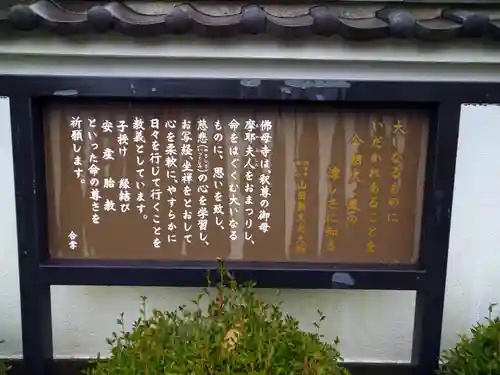 大いなるものに
いだかれあることを
今朝吹く風の
涼しさに知る
山田無文老大師
佛母寺は、釈尊の御母
摩耶夫人をおまつりし、
命をはぐくむ大いなる
ものに、思いを致し、
慈悲の心を学習し、
お写経、坐禅をとおして
心を柔軟に、やすらかに
日々を行じて行くことを
教義としています。
子授け 縁結び
安産 胎教
といった命の尊さを
祈願します。
合掌